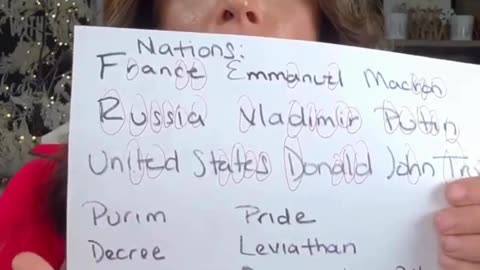 Nations:
France Emmanuel Macron
Russia Vladimir Putin
United States Donald John
Purim Pride
Decree Leviathan